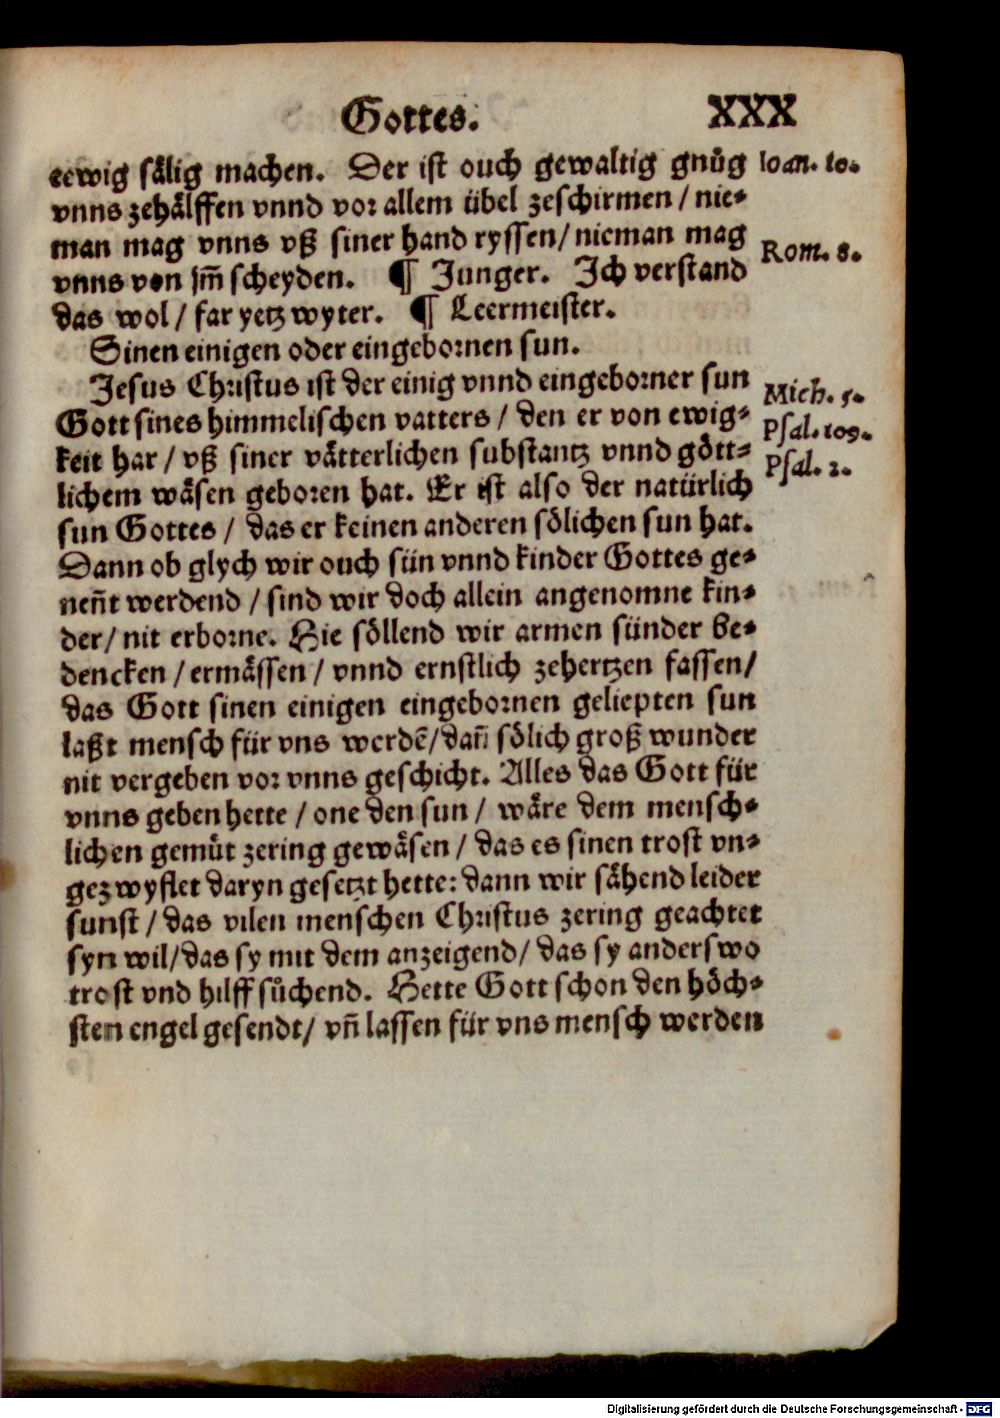 Gottes. XXX
eewig sålig machen. Der ist ouch gewaltig gnůg Ioan. 10.
vnns zehålffen vnnd vor allem übel zeschirmen / nie-
man mag vnns vß siner hand ryssen / nieman mag Rom. 8.
vnns von jm̃ scheyden. ¶ Junger. Jch verstand
das wol / far yetz wyter. ¶ Leermeister.
Sinen einigen oder eingebornen sun.
Jesus Christus ist der einig vnnd eingeborner sun Mich. 5.
Gott sines himmelischen vatters / den er von ewig- Psal. 109.
keit har / vß siner våtterlichen substantz vnnd gött- Psal. 2.
lichem wåsen geboren hat. Er ist also der natürlich
sun Gottes / das er keinen anderen sölichen sun hat.
Dann ob glych wir ouch sün vnnd kinder Gottes ge-
neñt werdend / sind wir doch allein angenomne kin-
der / nit erborne. Hie söllend wir armen sünder be-
dencken / ermåssen / vnnd ernstlich zehertzen fassen /
das Gott sinen einigen eingebornen geliepten sun
laßt mensch für vns werdẽ / dañ sölich groß wunder
nit vergeben vor vnns geschicht. Alles das Gott für
vnns geben hette / one den sun / wåre dem mensch-
lichen gemůt zering gewåsen / das es sinen trost vn-
gezwyflet daryn gesetzt hette: dann wir såhend leider
sunst / das vilen menschen Christus zering geachtet
syn wil / das sy mit dem anzeigend / das sy anderswo
trost vnd hilff sůchend. Hette Gott schon den höch-
sten engel gesendt / vñ lassen für vns mensch werden
Digitalisierung gefördert durch die Deutsche Forschungsgemeinschaft - DFG